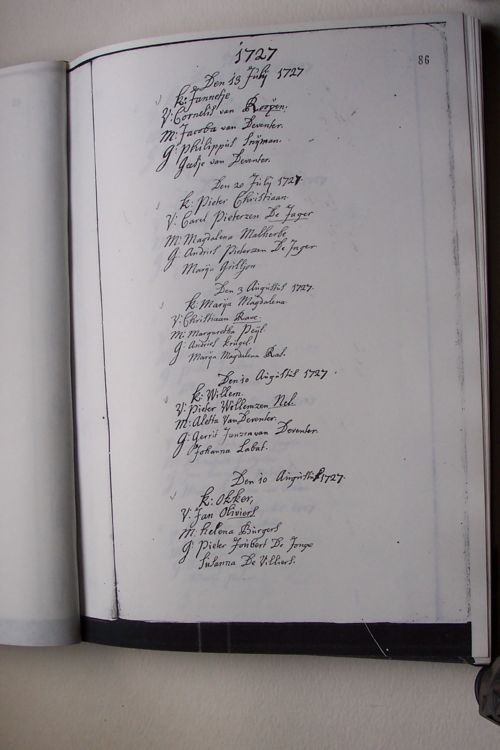 86
1727
Den 13 Julij 1727
K: Jannetje
V: Cornelis van Rooyen.
M: Jacoba van Deventer.
G: Philippus Snijman.
Geesje van Deventer.
Den 20 Julij 1727.
K: Pieter Christiaan
V: Carel Pieterzen De Jager
M: Magdalena Malherbe
G: Andries Pieterzen De Jager
Marija
Den 3 Augustus 1727.
K: Marija Magdalena
V: Christiaan
M: Margaretha
G: Andries Krugel
Marija Magdalena
Den 10 Augustus 1727.
K: Willem.
V: Pieter Willemzen Nel.
M: Aletta Van Deventer.
G: Gerrit Janzen van Deventer.
Johanna Labat.
Den 10 Augustus 1727.
K: Okker,
V: Jan Oliviers
M: Helena Burgers
G: Pieter Joubert De Jonge
Susanna De Villiers.